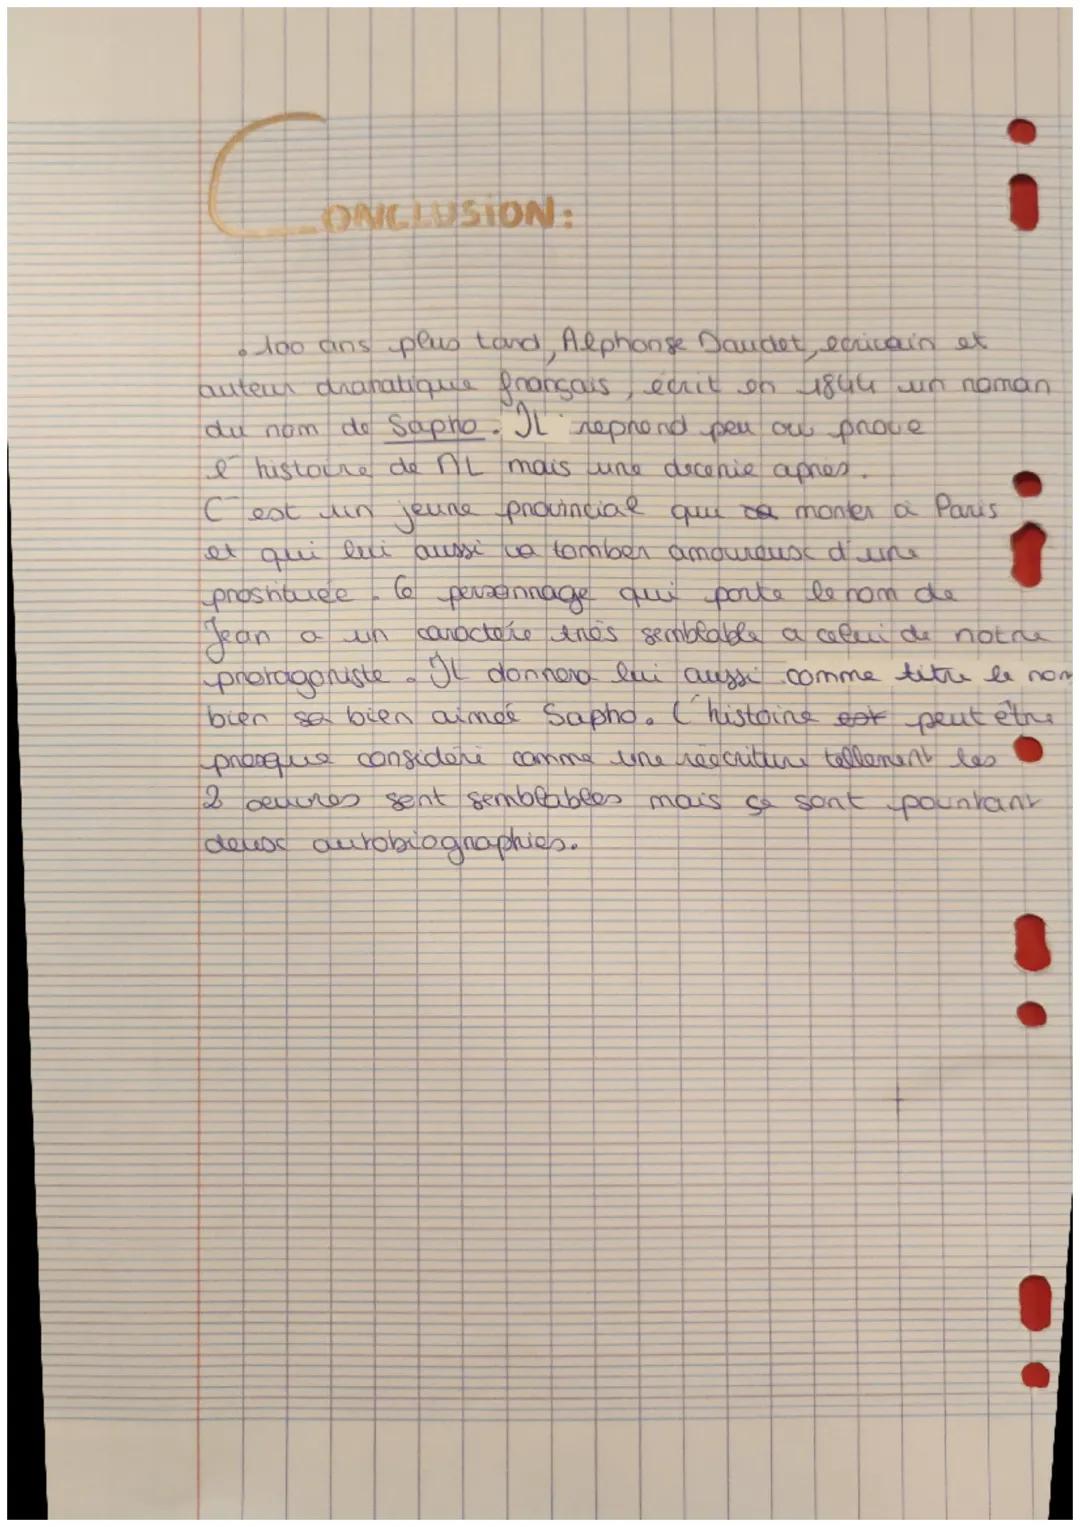 CONCLUSION:
. 100 ans plus tard, Alphonse Daudet, ecrivain et
auteur dramatique français, écrit en 1844 un roman
du nom de Sapho. Il reprend peu ou prove
l'histoire de ML mais une decenie apres.
C'est un jeune provincial qui va monter a Paris
et qui lui aussi va tomber amoureux d'une
prostituée. Ce personnage qui porte le nom de
Jean a un caractère très semblable a celui de notre
protagoniste. Il donnera lui aussi comme titre le nom
bien sa bien aimée Sapho. L'histoire est peut être
presque consideré comme une réécriture tellement les
2 oeuvres sont semblables mais se sont pourtant
deux autobiographies.